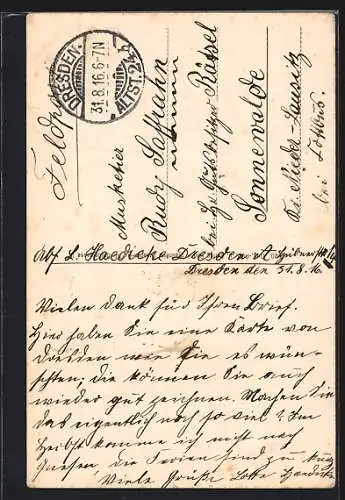 Feldp
DRESDEN-
31.8.16.6-7N
ALTST. 24 h
Musketier
Rudy Saffrahn
bei Hr. Gutsbesitzer Rätsel
Sonnewalde
Kr. Nieder-Lausitz
bei Cottbus.
Abs. L. Haedicke Dresden A.
Dresden den 31.8.16
Vielen Dank für Ihren Brief.
Hier haben Sie eine Karte von
Dresden wie Sie es wün-
schten, die können Sie auch
wieder gut zeichnen. Machen Sie
das eigentlich noch so viel? Im
Herbst komme ich nicht nach
Gnesen, die Ferien sind zu kurz
Viele Grüße Lotte Haedicke